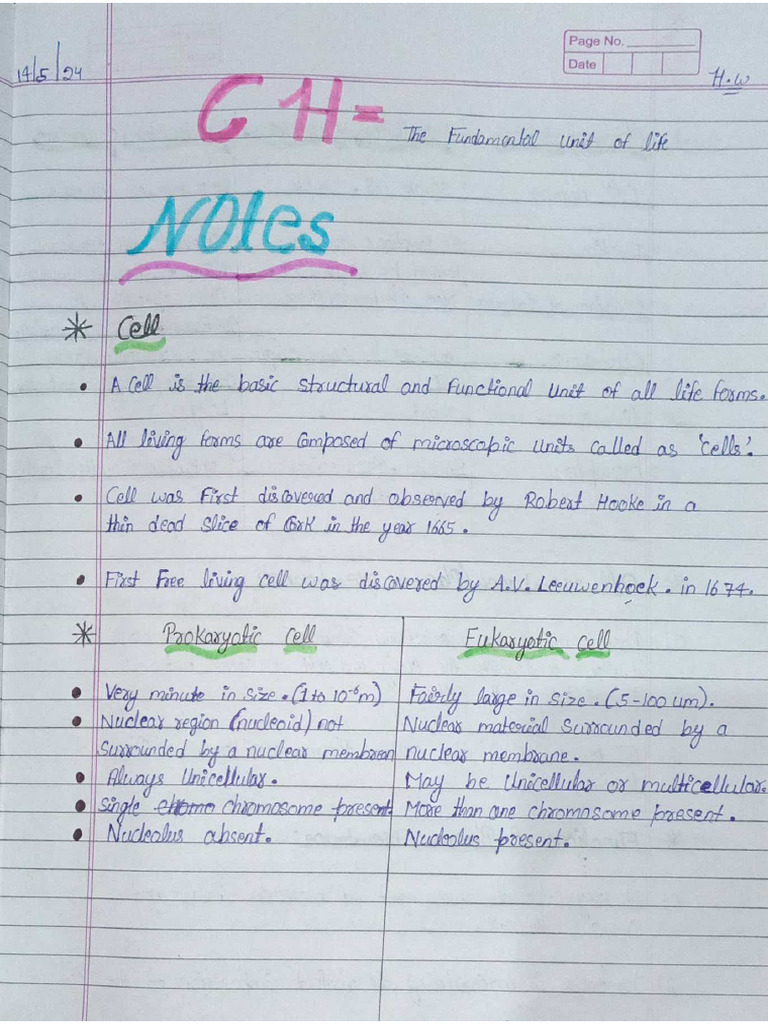 14/5/24
Page No.
Date
H.W
CH= The Fundamental unit of life
Notes
* Cell
• A Cell is the basic structural and Functional Unit of all life forms.
• All living forms are composed of microscopic units called as 'cells'.
• Cell was First discovered and observed by Robert Hooke in a
thin dead slice of Cork in the year 1665.
• First Free living cell was discovered by A.V. Leeuwenhoek. in 1674.
* Prokaryotic cell
Eukaryotic cell
• Very minute in size. (1 to 10⁻⁶m)
Fairly large in size. (5-100 um).
• Nuclear region (nucleoid) not
surrounded by a nuclear membrean
Nuclear material surrounded by a
nuclear membrane.
• Always Unicellular.
May be Unicellular or multicellular.
• Single chromo chromosome present
More than one chromosome present.
• Nucleolus absent.
Nucleolus present.